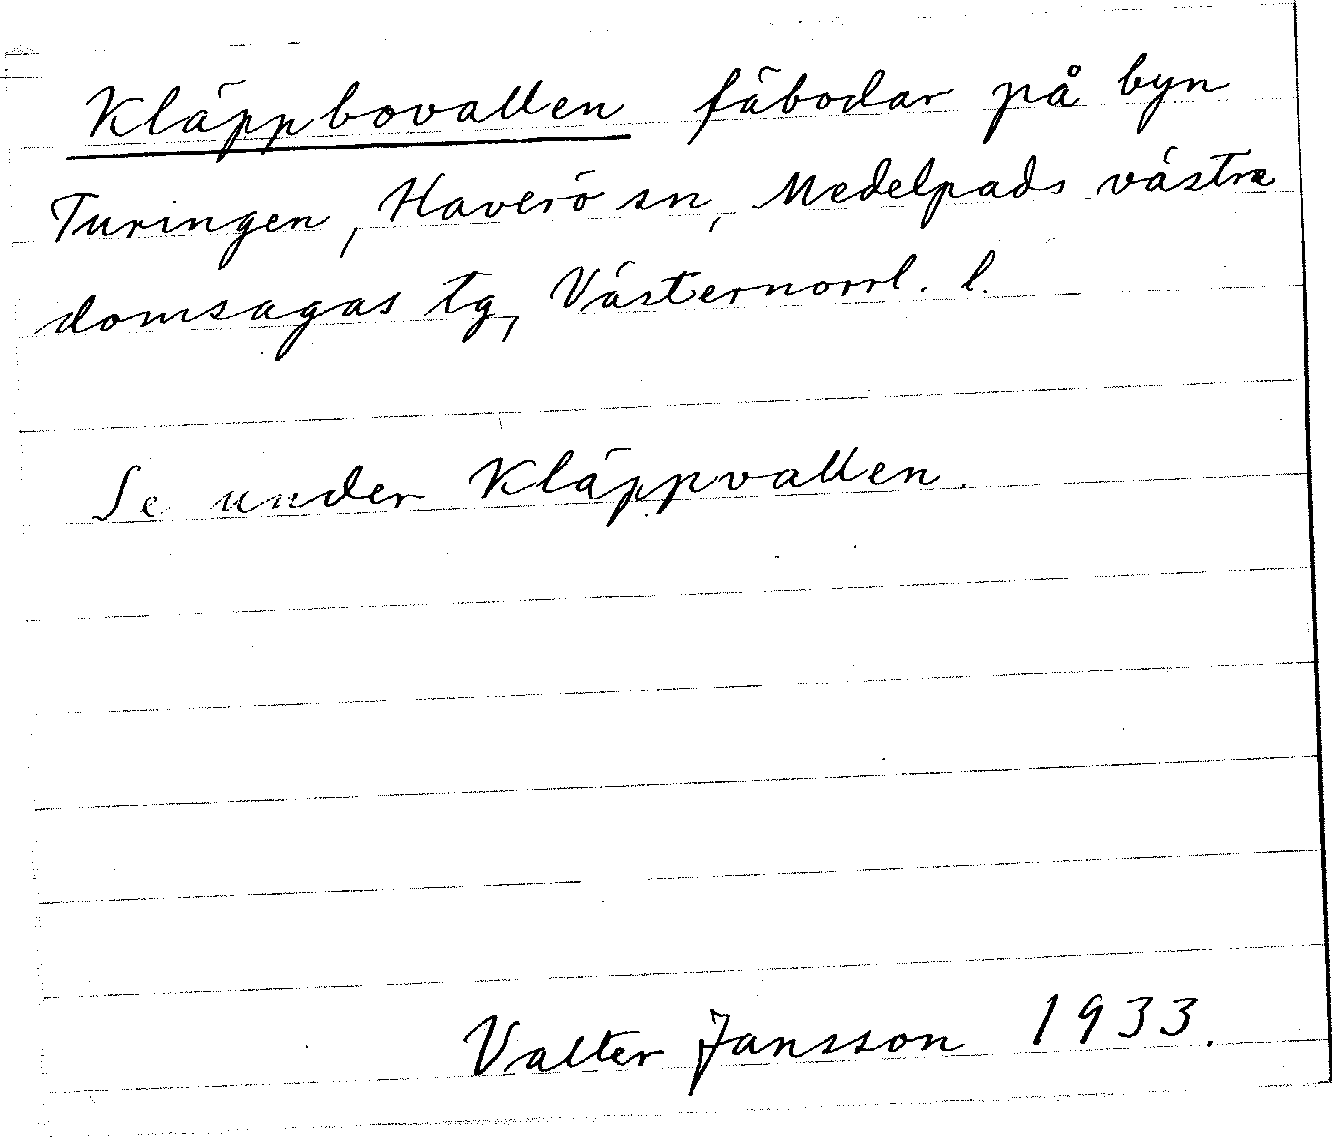 Kläppbovallen fäbodar på byn
Turingen, Haverö sn, Medelpads västra
domsagas tg, Västernorrl. l.
Se under Kläppvallen.
Valter Jansson 1933.